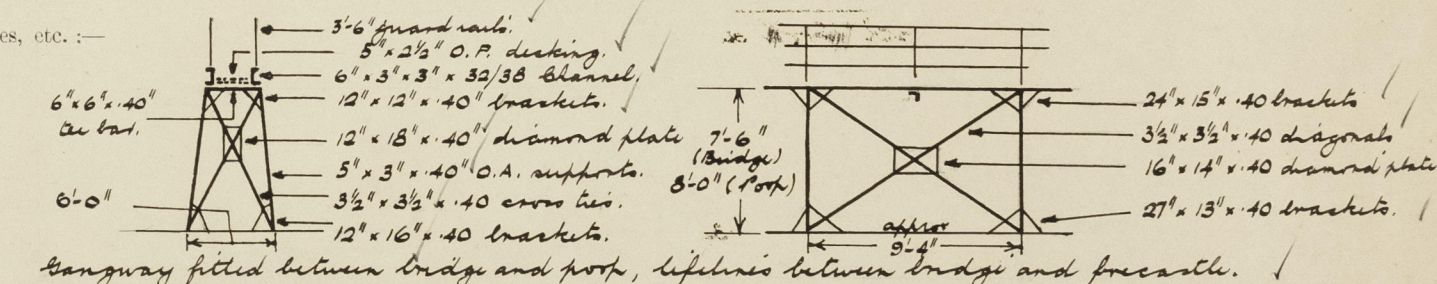 es, etc. :—
3'-6" guard rails.
5" × 2½" O.P. decking.
6" × 3" × 3" × 32/38 Channel.
12" × 12" × .40" brackets.
6" × 6" × .40"
tee bar.
12" × 18" × .40" diamond plate
5" × 3" × .40" O.A. supports.
6'-0"
3½" × 3½" × .40 cross ties.
12" × 16" × .40 brackets.
7'-6"
(Bridge)
8'-0" (Poop)
24" × 15" × .40 brackets
3½" × 3½" × .40 diagonals
16" × 14" × .40 diamond plate
27" × 13" × .40 brackets.
approx
9'-4"
Gangway fitted between bridge and poop, lifelines between bridge and forecastle.